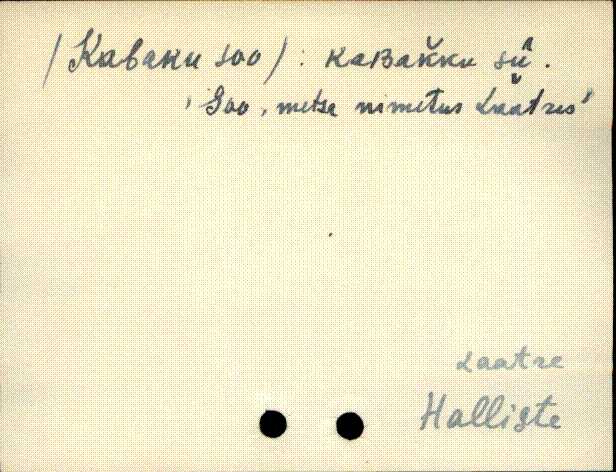 /Kabaku soo/: kaʙak̆ku sū̂.
'Soo, metsa nimetus Laatres'
Laatre
Halliste